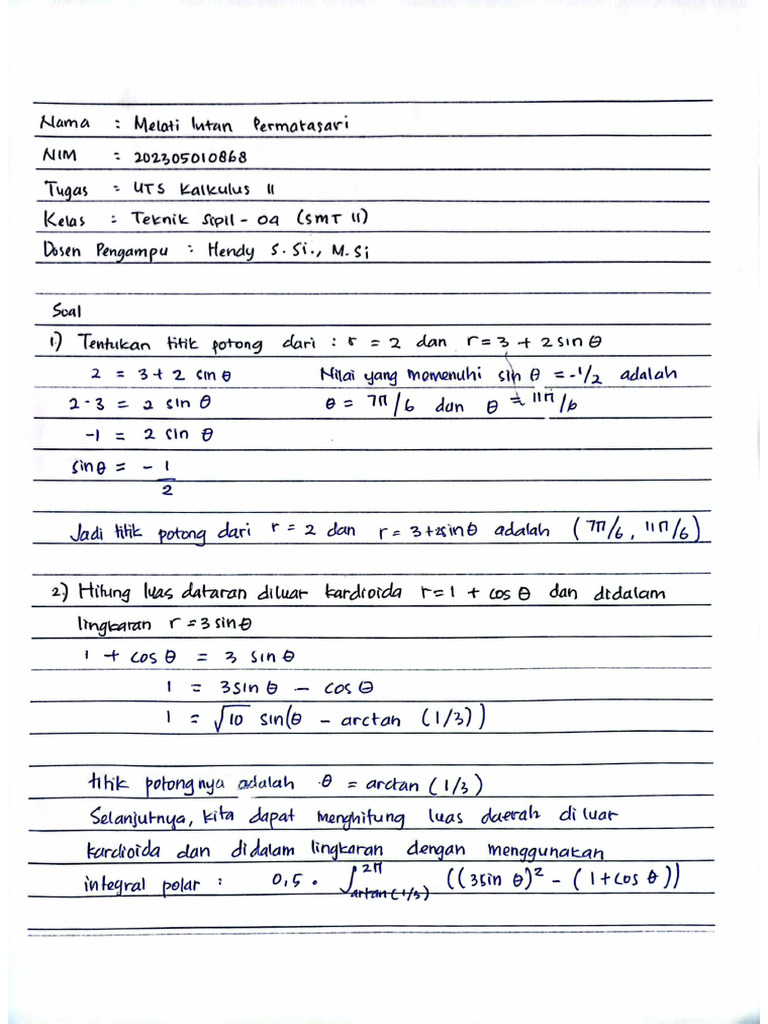 Nama : Melati Intan Permatasari
NIM : 202305010868
Tugas : UTS Kalkulus II
Kelas : Teknik Sipil - 09 (SMT II)
Dosen Pengampu : Hendy S.Si., M.Si
Soal
1) Tentukan titik potong dari : r = 2 dan r = 3 + 2 sin θ
2 = 3 + 2 sin θ Nilai yang memenuhi sin θ = -1/2 adalah
2 - 3 = 2 sin θ θ = 7π/6 dan θ = 11π/6
-1 = 2 sin θ
sin θ = - 1/2
Jadi titik potong dari r = 2 dan r = 3 + 2sin θ adalah (7π/6, 11π/6)
2) Hitung luas dataran diluar kardioida r = 1 + cos θ dan didalam
lingkaran r = 3 sin θ
1 + cos θ = 3 sin θ
1 = 3 sin θ - cos θ
1 = √10 sin(θ - arctan (1/3))
titik potongnya adalah θ = arctan (1/3)
Selanjutnya, kita dapat menghitung luas daerah diluar
kardioida dan didalam lingkaran dengan menggunakan
integral polar : 0,5 . ∫_{artan(1/3)}^{2π} ((3sin θ)² - (1 + cos θ))